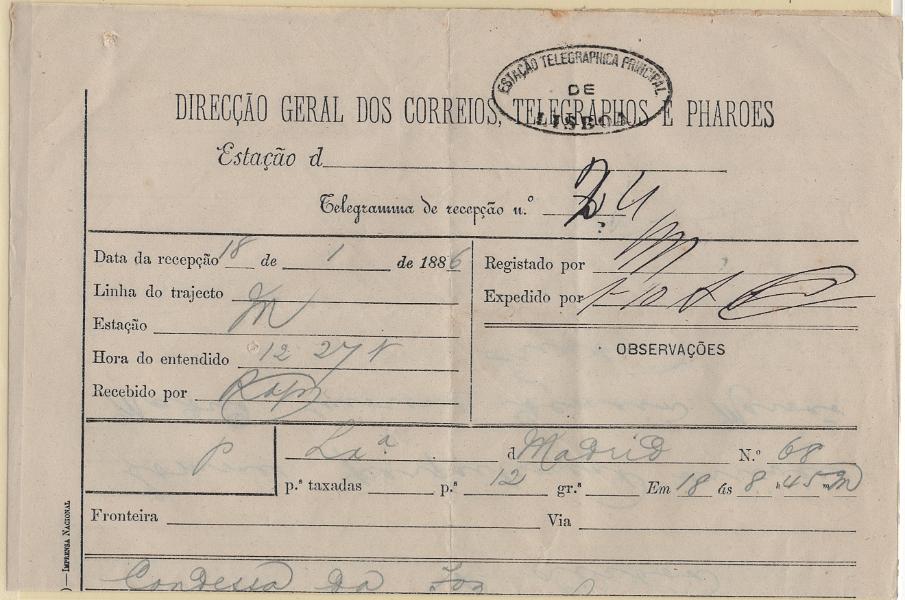 ESTAÇÃO TELEGRAPHICA PRINCIPAL
DE
LISBOA
DIRECÇÃO GERAL DOS CORREIOS, TELEGRAPHOS E PHAROES
Estação d
Telegramma de recepção n.º
Data da recepção 18 de 1 de 1886
Linha do trajecto
Estação M
Hora do entendido 12 27
Recebido por
Registado por
Expedido por
OBSERVAÇÕES
P
d Madrid N.º 68
p.ª taxadas p.ª 12 gr.ª Em 18 ás 8 h 45 m M
Fronteira Via
Condessa da Foz
IMPRENSA NACIONAL